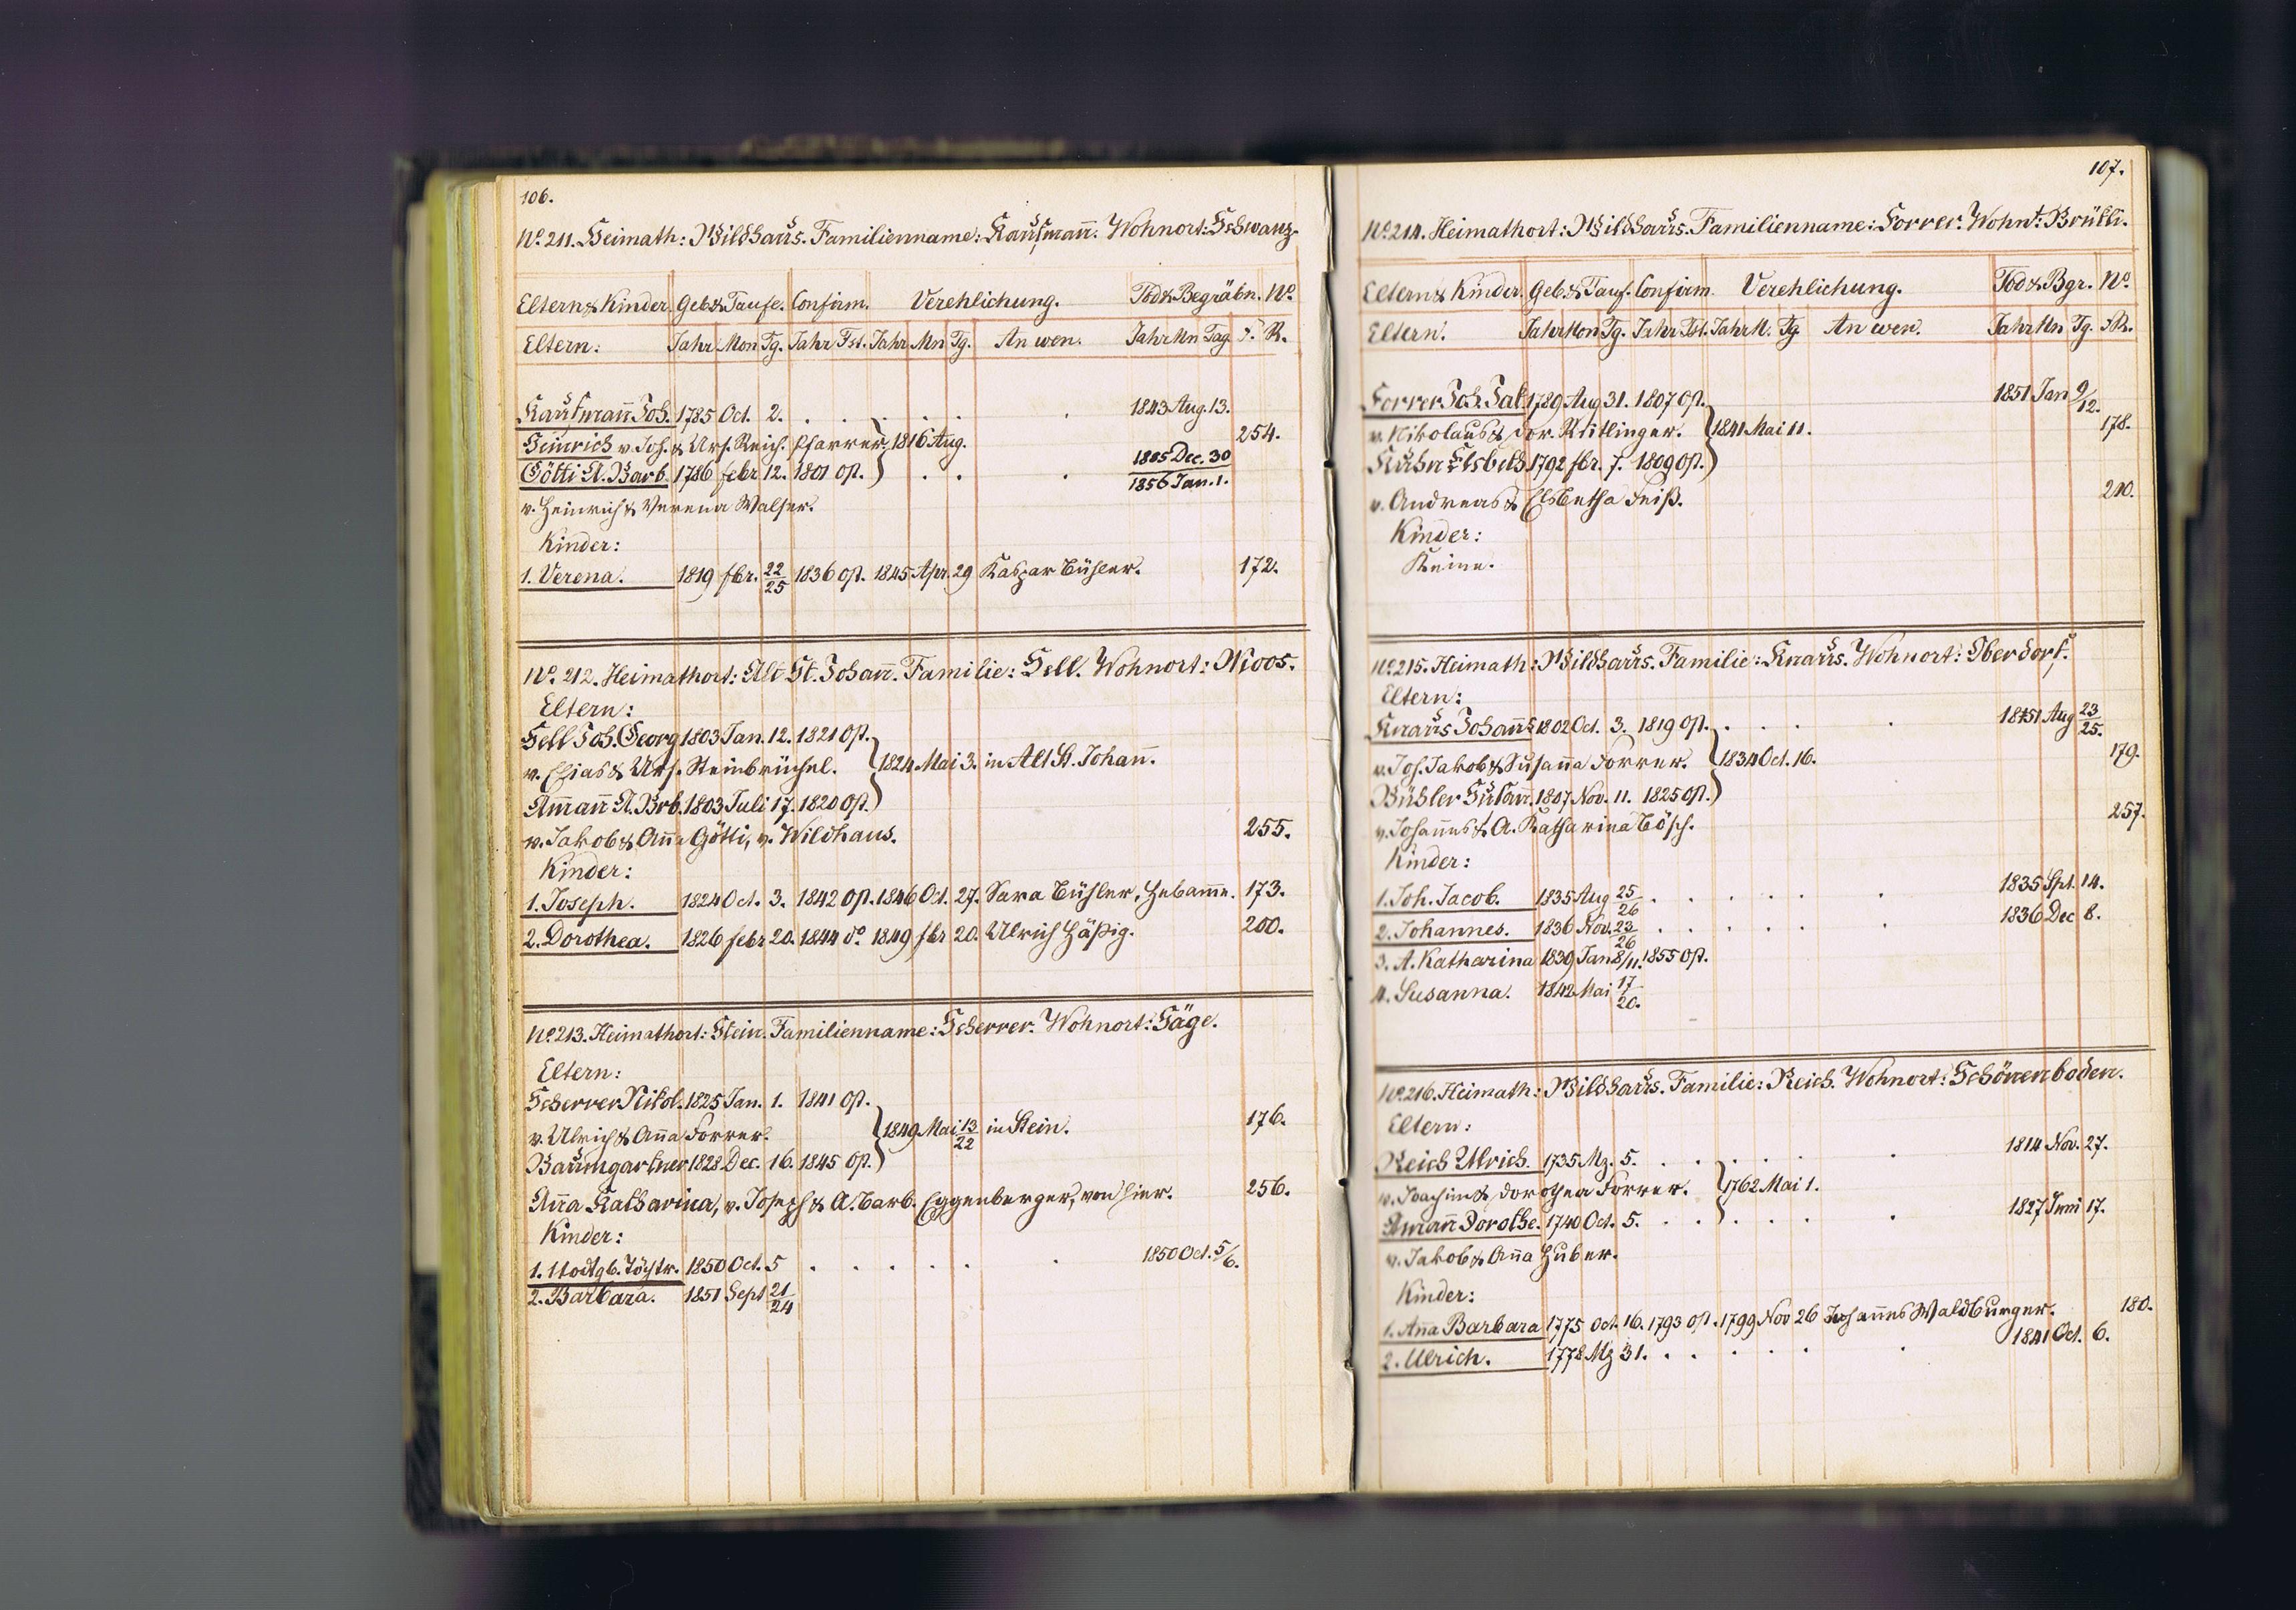 106.
No. 211. Heimath: Wildhaus. Familienname: Kaufmañ. Wohnort: Schwanz.
Eltern & Kinder Geb.& Taufe. Confirm. Verehlichung. Tod & Begräbn. No.
Eltern: Jahr Mon Tg. Jahr Fst. Jahr Mn Tg. An wen. Jahr Mn Tag F. R.
Kaufmañ Joh. 1785 Oct. 2. . . . . . . 1843 Aug. 13.
Heinrich v. Joh. & Urs. Reich. Pfarrer. 1816 Aug. 254.
Götti A. Barb. 1786 febr 12. 1801 Op. . . . 1855 Dec. 30 / 1856 Jan. 1.
v. Heinrich & Verena Walser.
Kinder:
1. Verena. 1819 fbr. 22/25 1836 Op. 1845 Apr. 29 Kaspar Bühler. 172.
No. 212. Heimathort: Alt St. Johañ. Familie: Sell. Wohnort: Moos.
Eltern:
Sell Joh. Georg 1803 Jan. 12. 1821 Op.
v. Elias & Urs. Steinbrüchel. 1824 Mai 3. in Alt St. Johañ.
Amañ A. Brb. 1803 Juli 17. 1820 Op.
v. Jakob & Aña Götti, v. Wildhaus. 255.
Kinder:
1. Joseph. 1824 Oct. 3. 1842 Op. 1846 Oct. 27. Sara Bühler, Hebame. 173.
2. Dorothea. 1826 febr 20. 1844 do. 1849 fbr 20. Ulrich Häßig. 200.
No. 213. Heimathort: Stein. Familienname: Scherrer. Wohnort: Säge.
Eltern:
Scherrer Nikol. 1825 Jan. 1. 1841 Op.
v. Ulrich & Aña Forrer. 1849 Mai 13/22 in Stein. 176.
Baumgartner 1828 Dec. 16. 1845 Op.
Aña Katharina, v. Joseph & A. Barb. Eggenberger, von hier. 256.
Kinder:
1. Nodtgb. Töchtr. 1850 Oct. 5 . . . . . . 1850 Oct. 5/6.
2. Barbara. 1851 Sept 21/24
107.
No. 214. Heimathort: Wildhaus. Familienname: Forrer. Wohnt: Brütli.
Eltern & Kinder. Geb.& Tauf. Confirm. Verehlichung. Tod & Bgr. No.
Eltern. Jahr Mon Tg. Jahr Fst. Jahr M. Tg. An wen. Jahr Mn Tg. F.R.
Forrer Joh. Jak 1789 Aug 31. 1807 Op. 1851 Jan 9/12.
v. Nikolaus & Dor. Küttlinger. 1841 Mai 11. 178.
Kuhn Elsbeth 1792 fbr. 7. 1809 Op.
v. Andreas & Elsbetha Feiß. 210.
Kinder:
Keine.
No. 215. Heimath: Wildhaus. Familie: Knaus. Wohnort: Oberdorf.
Eltern:
Knaus Johañs 1802 Oct. 3. 1819 Op. . . . . 1851 Aug 23/25.
v. Joh. Jakob & Susaña Forrer. 1834 Oct. 16. 179.
Bühler Susañ. 1807 Nov. 11. 1825 Op.
v. Johañes & A. Katharina Bösch. 257.
Kinder:
1. Joh. Jacob. 1835 Aug 25/26 . . . . . . 1835 Spt. 14.
2. Johannes. 1836 Nov. 23/26 . . . . . . 1836 Dec 8.
3. A. Katharina 1839 Jan 8/11. 1855 Op.
4. Susanna. 1842 Mai 17/20.
No. 216. Heimath: Wildhaus. Familie: Reich. Wohnort: Schönenboden.
Eltern:
Reich Ulrich. 1735 Mz. 5. . . . . . 1814 Nov. 27.
v. Joachim & Dorothea Forrer. 1762 Mai 1.
Amañ Dorothe. 1740 Oct. 5. . . . . . . 1827 Juni 17.
v. Jakob & Aña Huber.
Kinder:
1. Aña Barbara 1775 Oct. 16. 1793 Op. 1799 Nov 26 Johañes Waldburger. 180.
2. Ulrich. 1778 Mz 31. . . . . . . 1841 Oct. 6.